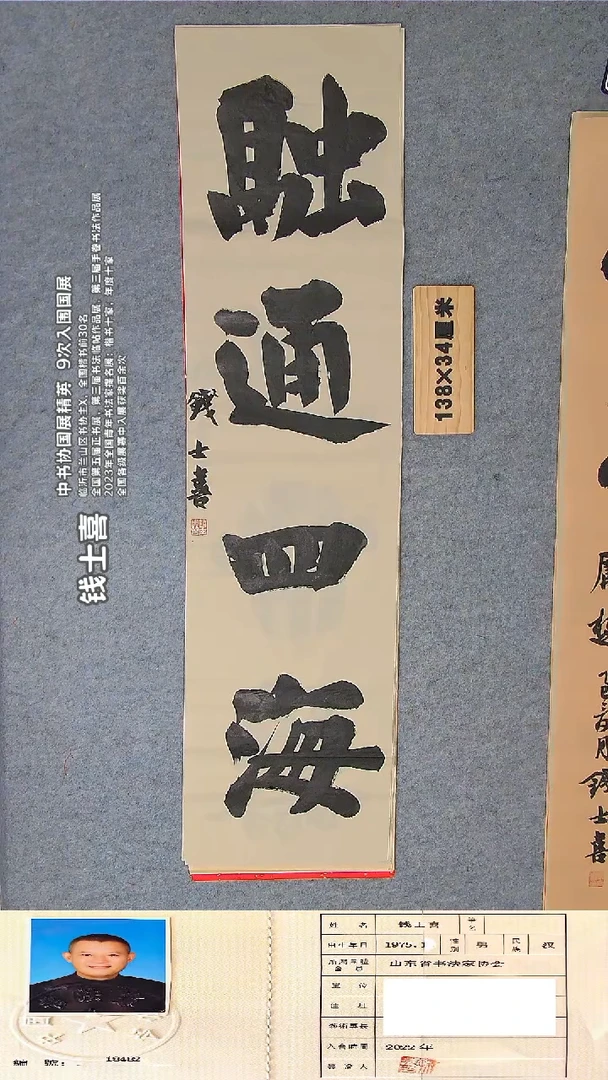 融通四海
錢士喜
138×34厘米
钱士喜
中书协国展精英 9次入围国展
临沂市兰山区书协主X、全国楷书前30名
全国第五届正书展、第三届书法临帖作品展、第三届手卷书法作品展
2023年全国青年书法家提名展；楷书十家，年度十家
全国各级展赛中入展获奖百余次
錢士喜
姓 名 钱士喜
出生年月 1975.1 性别 男 民族 汉
山东省书法家协会
入会時間 2022年
編 號：